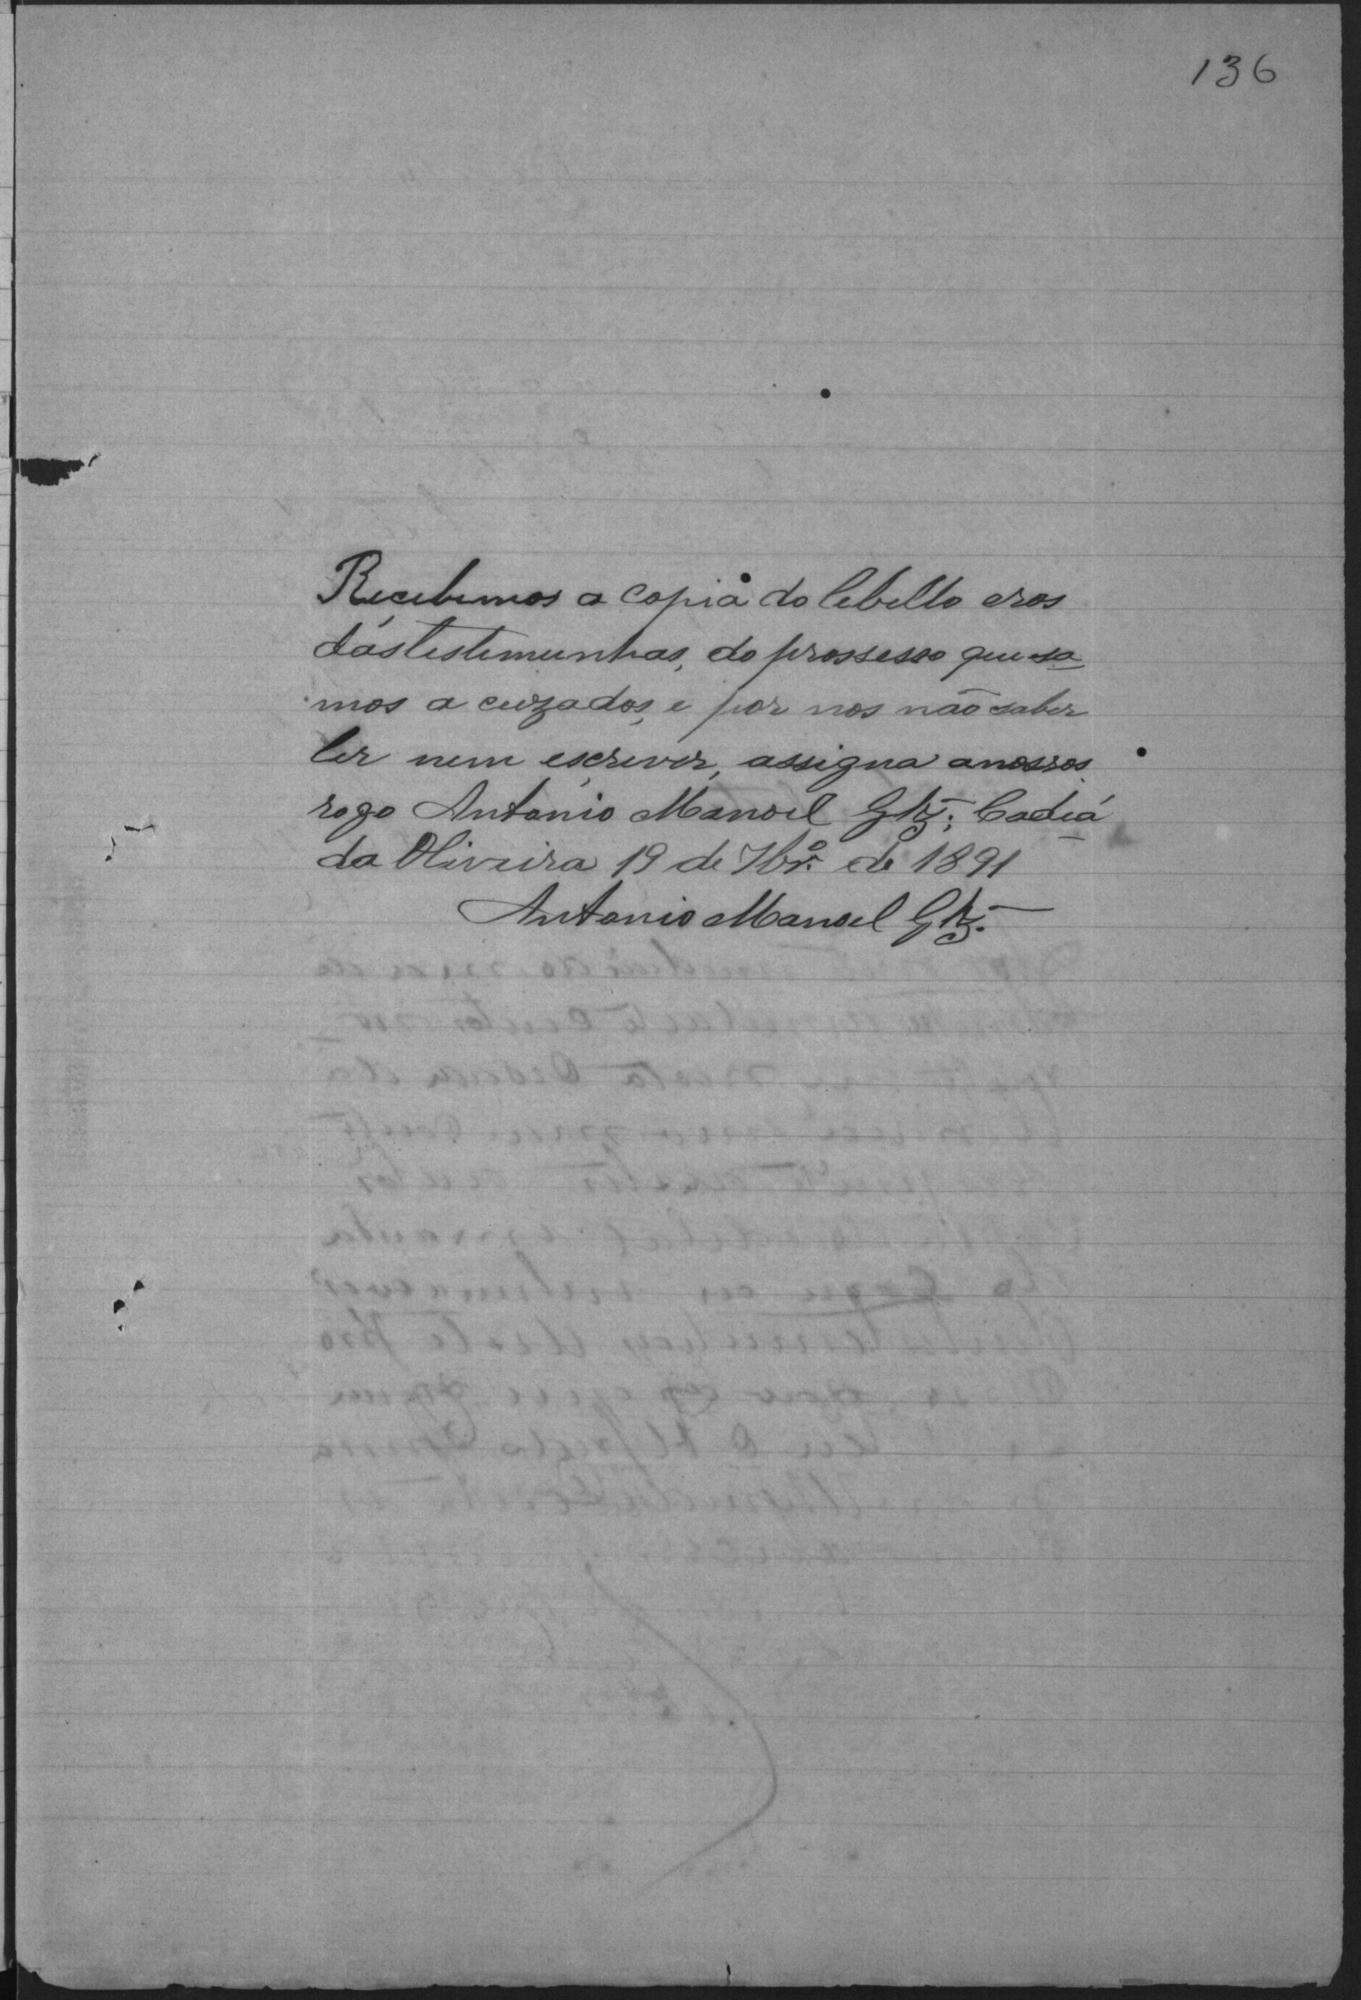 136
Recebemos a copia do lebello eros
dástestemunhas, do prossesso que sa
mos a cuzados, e por nos não saber
ler nem escrever, assigna anossos
rogo Antonio Manoel Glz; Cadeá
da Oliveira 19 de 7br.º de 1891
Antonio Manoel Glz.